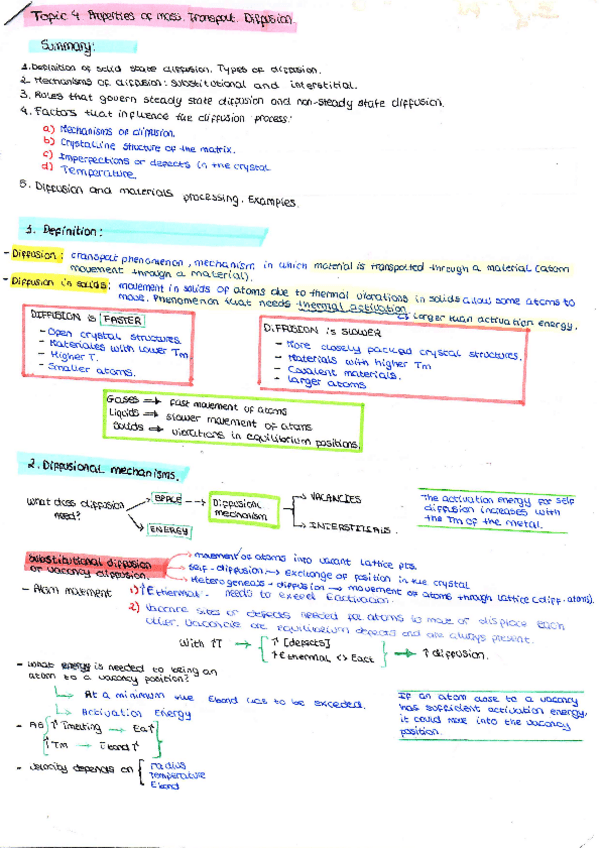 Topic 4 Properties of mass. Transport. Diffusion
Summary:
1. Definition of solid state diffusion. Types of diffusion.
2. Mechanisms of diffusion: substitutional and interstitial.
3. Rules that govern steady state diffusion and non-steady state diffusion.
4. Factors that influence the diffusion process:
a) Mechanisms of diffusion.
b) Crystalline structure of the matrix.
c) Imperfections or defects in the crystal
d) Temperature.
5. Diffusion and materials processing. Examples.
1. Definition:
- Diffusion: transport phenomenon, mechanism in which material is transported through a material (atom
movement through a material).
- Diffusion in solids: movement in solids of atoms due to thermal vibrations in solids allow some atoms to
move. Phenomenon that needs thermal activation
↳ larger than activation energy.
DIFFUSION is FASTER
- Open crystal structures.
- Materiales with lower Tm
- Higher T.
- Smaller atoms.
DIFFUSION is SLOWER
- More closely packed crystal structures.
- Materials with higher Tm
- Covalent materials.
- Larger atoms
Gases ⇒ fast movement of atoms
Liquids ⇒ slower movement of atoms
Solids ⇒ vibrations in equilibrium positions.
2. Diffusional mechanisms.
What does diffusion
need?
SPACE
ENERGY
Diffusion
mechanism
→ VACANCIES
→ INTERSTITIALS.
The activation energy for self
diffusion increases with
the Tm of the metal.
Substitutional diffusion
or vacancy diffusion.
→ movement of atoms into vacant lattice pts.
→ self-diffusion → Exchange of position in the crystal
→ Heterogeneous-diffusion → movement of atoms through lattice (diff. atoms).
- Atom movement 1) ↑Ethermal - needs to exceed Eactivation.
2) Vacance sites or defects needed for atoms to move or displace each
other. Vacancies are equilibrium defects and are always present.
With ↑T → ↑ [defects]
↑ Ethermal <> Eact → ↑ diffusion.
- What energy is needed to being an
atom to a vacancy position?
↳ At a minimum the Ebond has to be exceded.
↳ Activation Energy
If an atom close to a vacancy
has sufficient activation energy,
it could move into the vacancy
position.
- As ↑ Tmelting → Ea↑
↑ Tm → Ebond ↑
- Velocity depends on radius
Temperature
Ebond